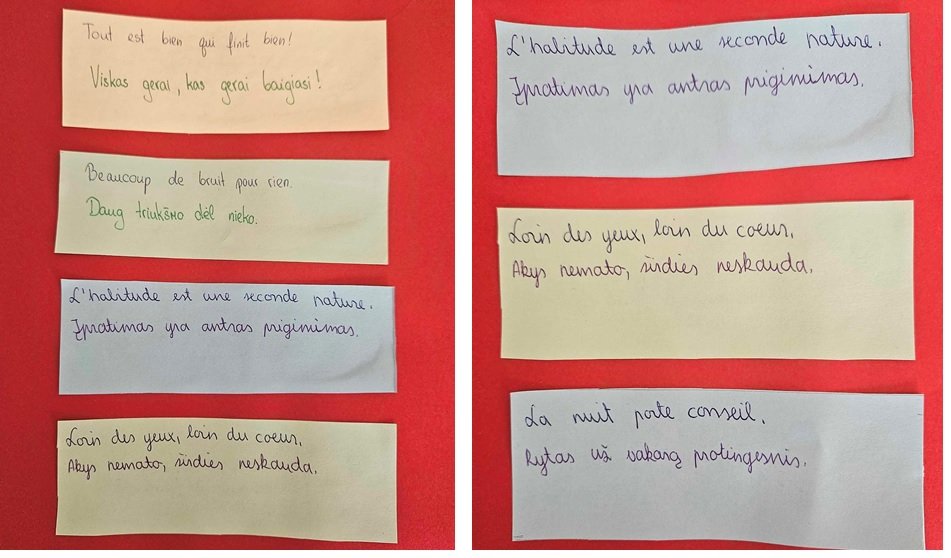 Tout est bien qui finit bien!
Viskas gerai, kas gerai baigiasi!
Beaucoup de bruit pour rien.
Daug triukšmo dėl nieko.
L'habitude est une seconde nature.
Įpratimas yra antras prigimimas.
Loin des yeux, loin du coeur.
Akys nemato, širdies neskauda.
L'habitude est une seconde nature.
Įpratimas yra antras prigimimas.
Loin des yeux, loin du coeur.
Akys nemato, širdies neskauda.
La nuit porte conseil.
Rytas už vakarą protingesnis.